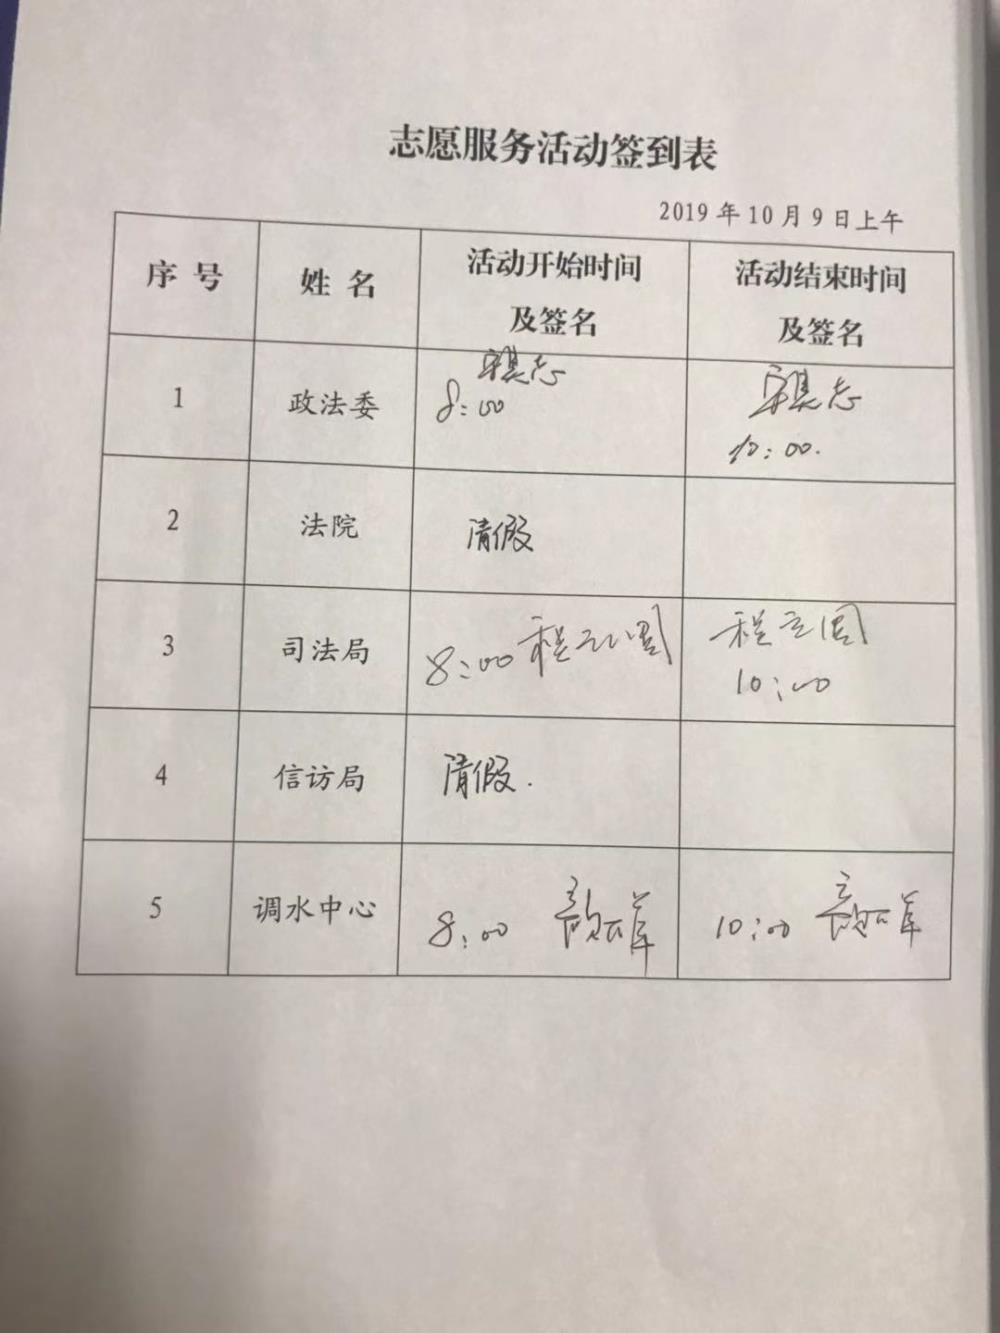 志愿服务活动签到表
2019年10月9日上午
序号 姓名 活动开始时间 活动结束时间
及签名 及签名
1 政法委 8:00
10:00.
2 法院 请假
3 司法局 8:00 程立国 程立国
10:00
4 信访局 请假.
5 调水中心 8:00 10:00